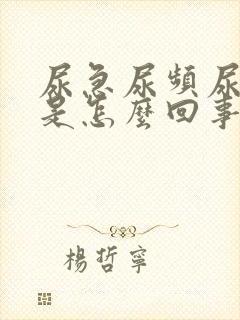 尿急尿頻尿
是怎麼回事
楊哲寧